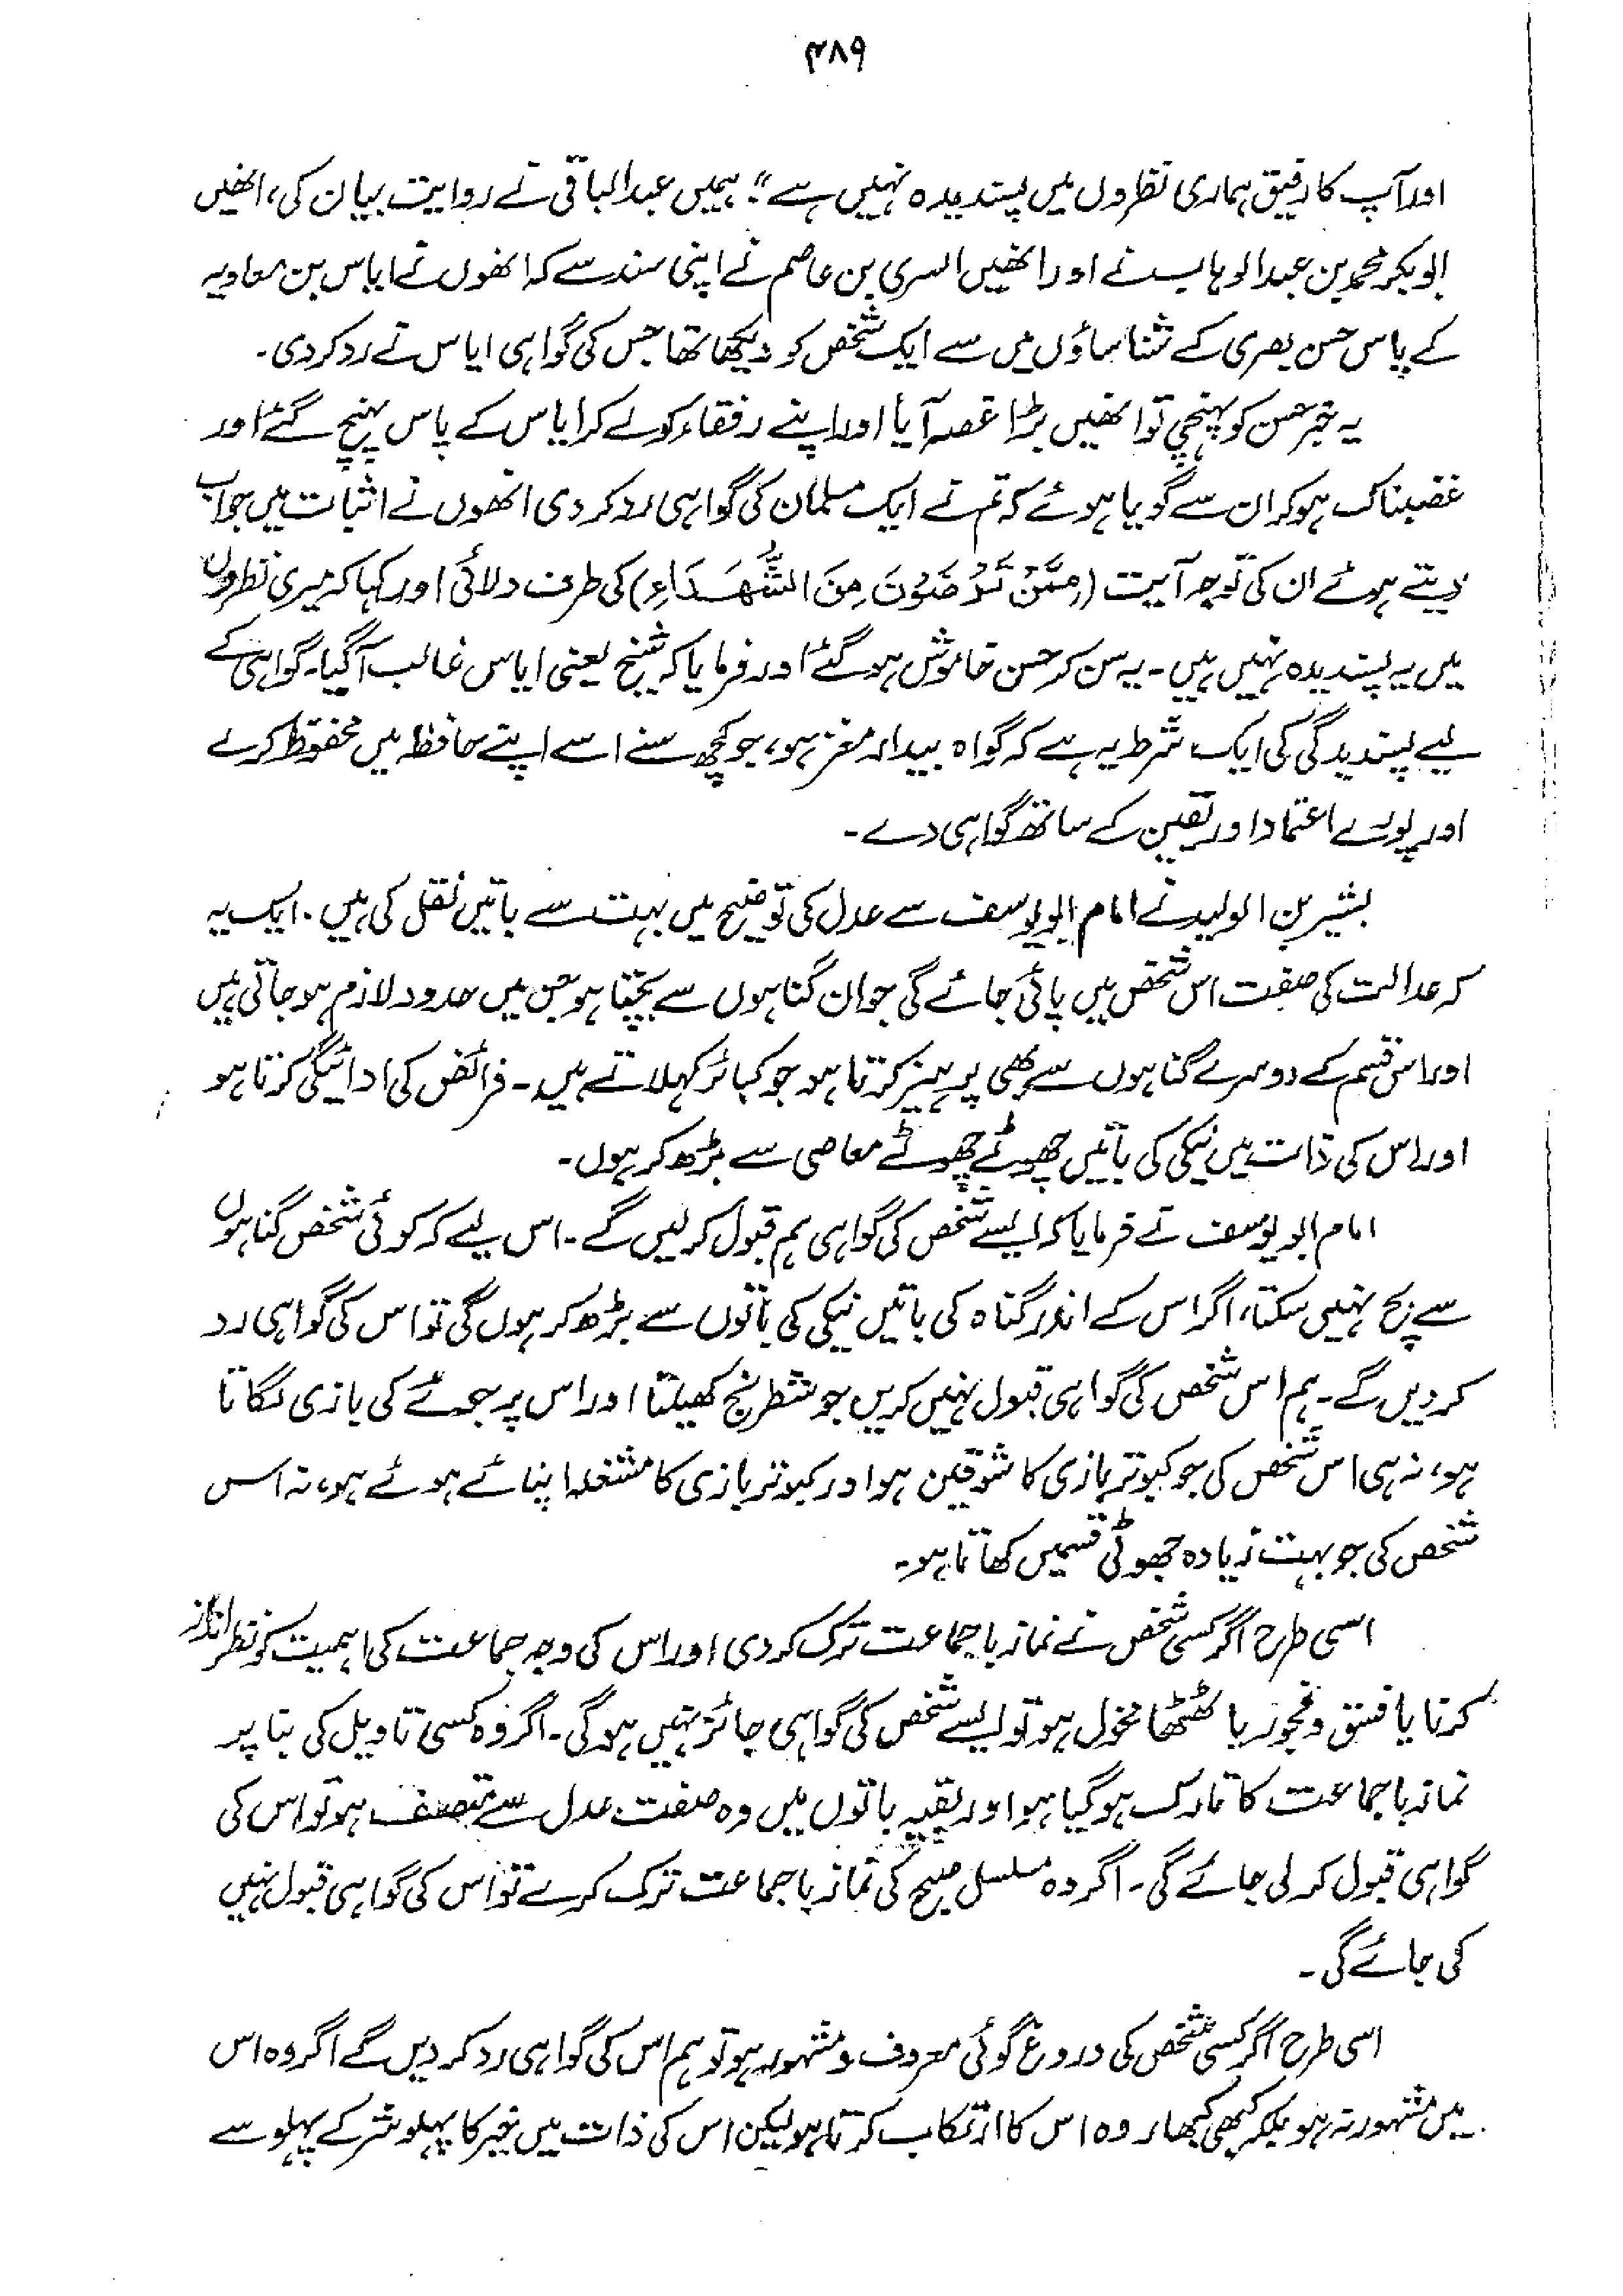 ۴۸۹
اور آپ کا رفیق ہماری نظروں میں پسندیدہ نہیں ہے"۔ ہمیں عبدالباقی نے روایت بیان کی، انھیں
ابوبکر محمد بن عبدالوہاب نے اور انھیں السری بن عاصم نے اپنی سند سے کہ انھوں نے ایاس بن معاویہ
کے پاس حسن بصری کے شناساؤں میں سے ایک شخص کو دیکھا تھا جس کی گواہی ایاس نے رد کر دی۔
یہ خبر حسن کو پہنچی تو انھیں بڑا غصہ آیا اور اپنے رفقاء کو لے کر ایاس کے پاس پہنچ گئے اور
غضبناک ہو کر ان سے گویا ہوئے کہ تم نے ایک مسلمان کی گواہی رد کر دی انھوں نے اثبات میں جواب
دیتے ہوئے ان کی توجہ آیت (مِمَّنْ تَرْضَوْنَ مِنَ الشُّهَدَاءِ) کی طرف دلائی اور کہا کہ میری نظروں
میں یہ پسندیدہ نہیں ہیں۔ یہ سن کر حسن خاموش ہو گئے اور فرمایا کہ شیخ یعنی ایاس غالب آگیا۔ گواہی کے
لیے پسندیدگی کی ایک شرط یہ ہے کہ گواہ بیدار مغز ہو، جو کچھ سنے اسے اپنے حافظہ میں محفوظ کر لے
اور پورے اعتماد اور یقین کے ساتھ گواہی دے۔
بشیر بن الولید نے امام ابو یوسف سے عدل کی توضیح میں بہت سے باتیں نقل کی ہیں۔ ایک یہ
کہ عدالت کی صفت اس شخص میں پائی جائے گی جو ان گناہوں سے بچتا ہو جس میں حدود لازم ہو جاتی ہیں
اور اس قسم کے دوسرے گناہوں سے بھی پرہیز کرتا ہو جو کبائر کہلاتے ہیں۔ فرائض کی ادائیگی کرتا ہو
اور اس کی ذات میں نیکی کی باتیں چھوٹے چھوٹے معاصی سے بڑھ کر ہوں۔
امام ابو یوسف نے فرمایا کہ ایسے شخص کی گواہی ہم قبول کر لیں گے۔ اس لیے کہ کوئی شخص گناہوں
سے بچ نہیں سکتا، اگر اس کے اندر گناہ کی باتیں نیکی کی باتوں سے بڑھ کر ہوں گی تو اس کی گواہی رد
کر دیں گے۔ ہم اس شخص کی گواہی قبول نہیں کریں جو شطرنج کھیلتا اور اس پر جوئے کی بازی لگاتا
ہو، نہ ہی اس شخص کی جو کبوتر بازی کا شوقین ہو اور کبوتر بازی کا مشغلہ اپنائے ہوئے ہو، نہ اس
شخص کی جو بہت زیادہ جھوٹی قسمیں کھاتا ہو۔
اسی طرح اگر کسی شخص نے نماز باجماعت ترک کر دی اور اس کی وجہ جماعت کی اہمیت کو نظر انداز
کرنا یا فسق و فجور یا ٹھٹھا مخول ہو تو ایسے شخص کی گواہی جائز نہیں ہوگی۔ اگر وہ کسی تاویل کی بنا پر
نماز باجماعت کا تارک ہو گیا ہو اور بقیہ باتوں میں وہ صفت عدل سے متصف ہو تو اس کی
گواہی قبول کر لی جائے گی۔ اگر وہ مسلسل صبح کی نماز باجماعت ترک کرے تو اس کی گواہی قبول نہیں
کی جائے گی۔
اسی طرح اگر کسی شخص کی دروغ گوئی معروف و مشہور ہو تو ہم اس کی گواہی رد کر دیں گے اگر وہ اس
میں مشہور نہ ہو بلکہ کبھی کبھار وہ اس کا ارتکاب کرتا ہو لیکن اس کی ذات میں خیر کا پہلو شر کے پہلو سے